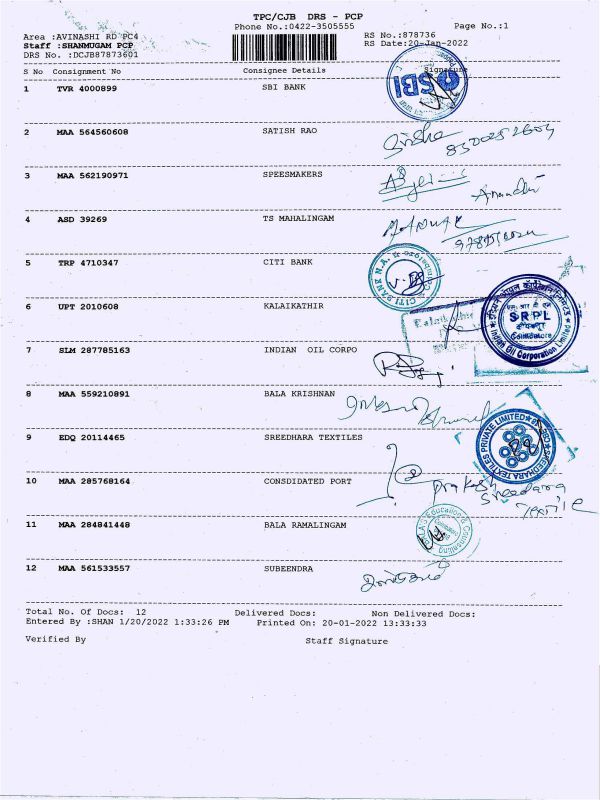 TPC/CJB DRS - PCP
Phone No.:0422-3505555
Page No.:1
Area :AVINASHI RD PC4
Staff :SHANMUGAM PCP
DRS No. :DCJB87873601
RS No.:878736
RS Date:20-Jan-2022
S No Consignment No Consignee Details Signature
1 TVR 4000899 SBI BANK
SBI
2 MAA 564560608 SATISH RAO
3 MAA 562190971 SPEESMAKERS
4 ASD 39269 TS MAHALINGAM
5 TRP 4710347 CITI BANK
CITIBANK N.A.
6 UPT 2010608 KALAIKATHIR
SRPL
Coimbatore
Indian Oil Corporation Limited
7 SLM 287785163 INDIAN OIL CORPO
8 MAA 559210891 BALA KRISHNAN
9 EDQ 20114465 SREEDHARA TEXTILES
SREEDHARA TEXTILES PRIVATE LIMITED
10 MAA 285768164 CONSDIDATED PORT
Prakash
Sreedara
11 MAA 284841448 BALA RAMALINGAM
12 MAA 561533557 SUBEENDRA
Total No. Of Docs: 12 Delivered Docs: Non Delivered Docs:
Entered By :SHAN 1/20/2022 1:33:26 PM Printed On: 20-01-2022 13:33:33
Verified By Staff Signature